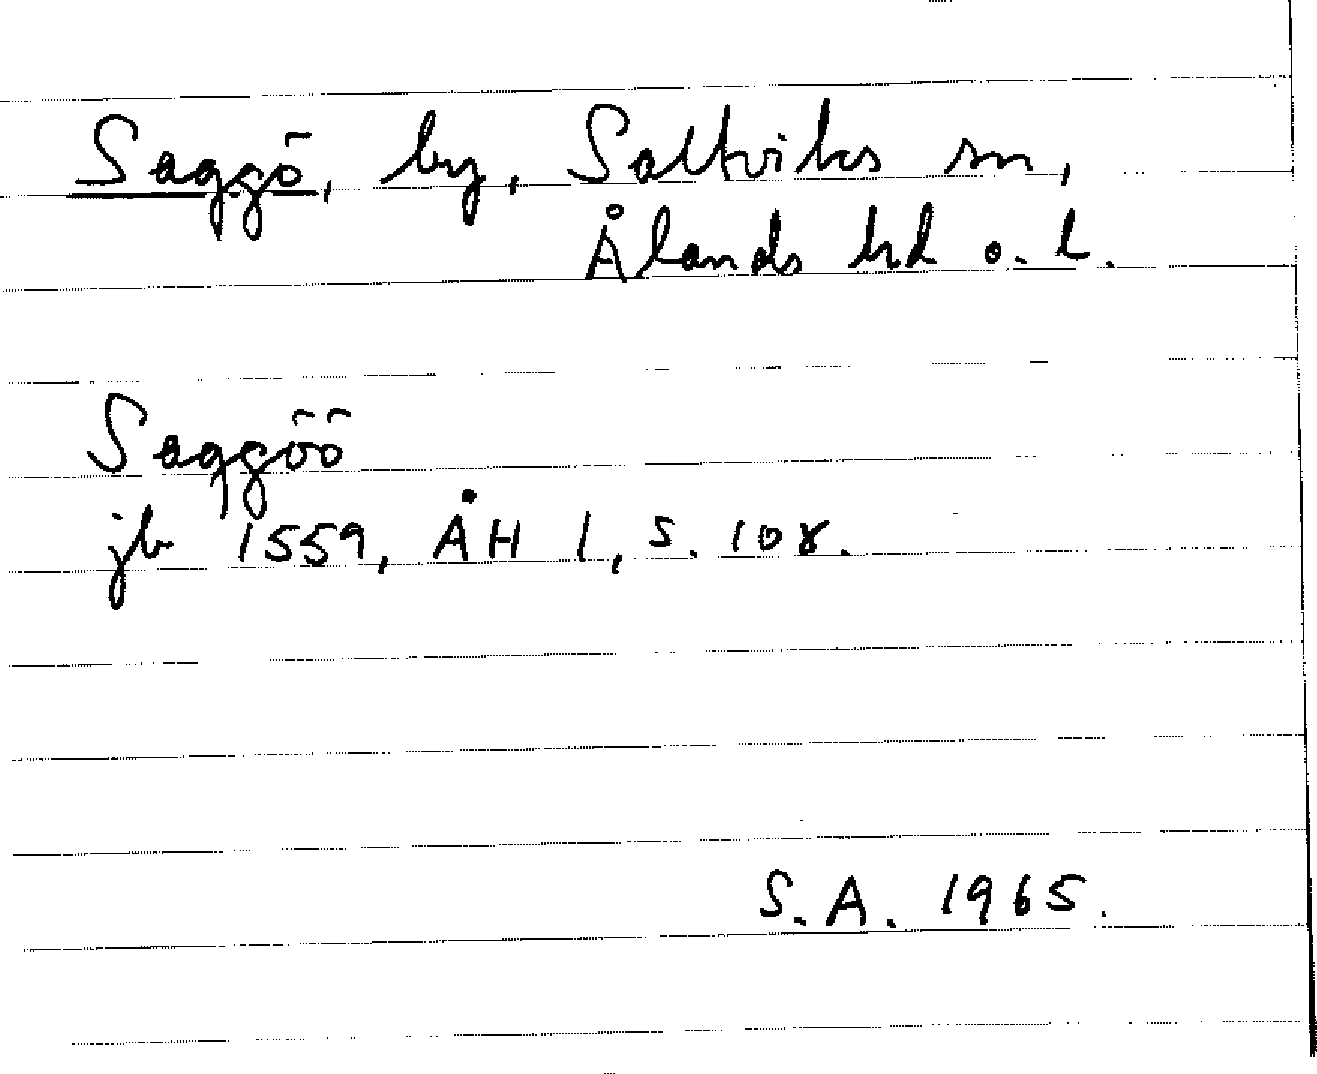 Saggö, by, Saltviks sn,
Ålands hd o. l.
Saggöö
jb 1559, ÅH 1, s. 108.
S.A. 1965.